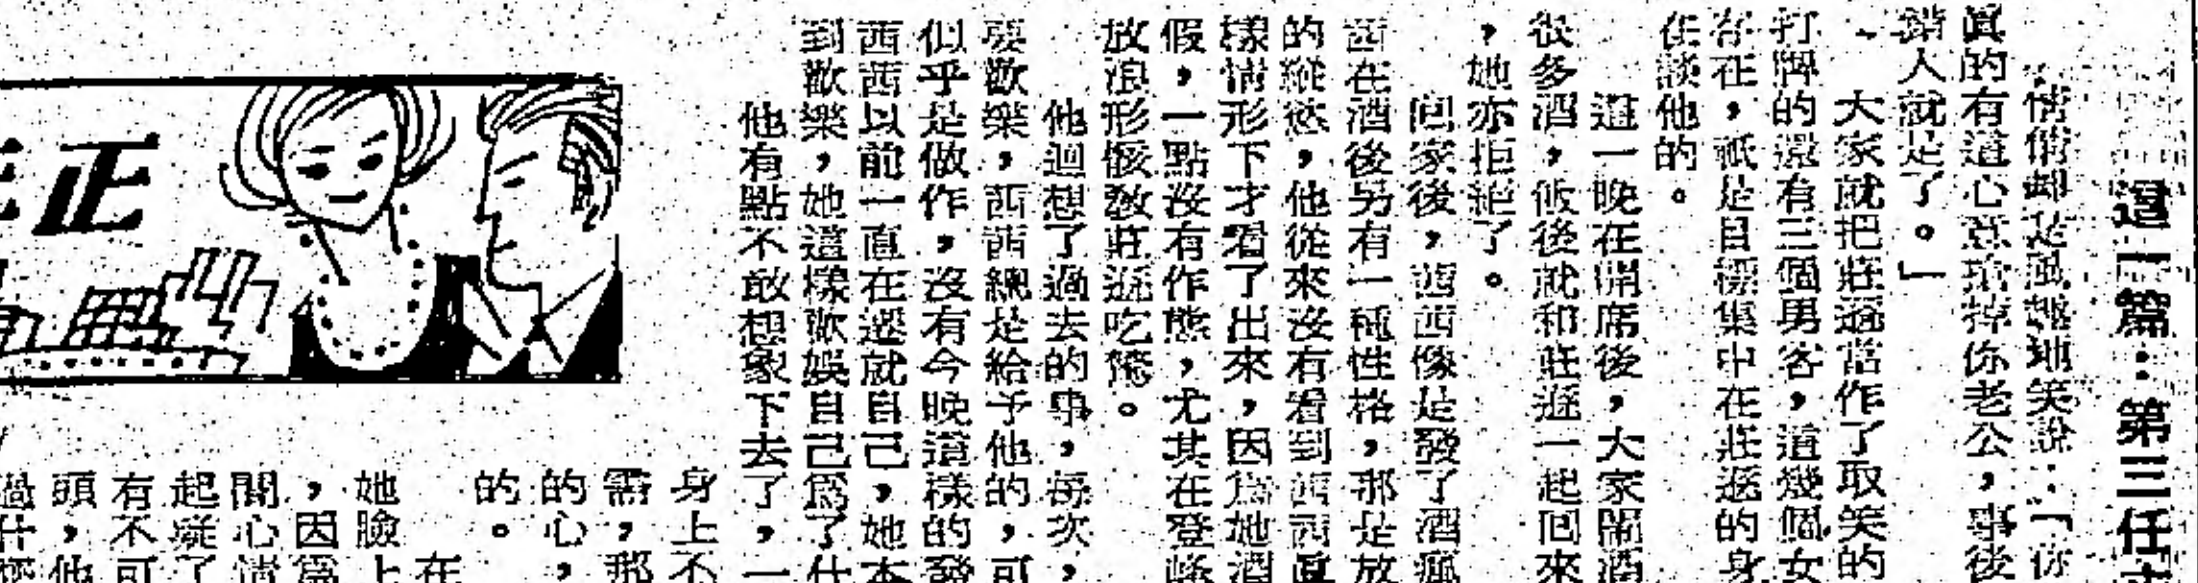 這一篇：第三任
情俏却是風趣地笑說：「你
眞的有道心意 掉你老公，事後
錯人就是了。」
大家就把莊遜當作了取笑的
打牌的還有三個男客，這幾個女
客在，祇是目標集中在莊遜的身
在談他的。
這一晚在開席後，大家鬧酒
很多酒，飯後就和莊遜一起回來
，她亦拒絕了。
回家後，西西像是發了酒瘋
西在酒後另有一種性格，那是放
的縱慾，他從來沒有看到西西眞
樣情形下才看了出來，因爲她酒
假，一點沒有作態，尤其在登
放浪形骸敎莊遜吃驚。
他迴想了過去的事，每次，
要歡樂，西西總是給予他的，可
似乎是做作，沒有今晚這樣的發
西西以前一直在遷就自己，她本
到歡樂，她這樣歡娛自己爲了什
他有點不敢想象下去了，一
正
身上不
需，那
的心，
的。
在
她臉上
，因爲
開心情
起疑了
有不可
頭，他
過什麼